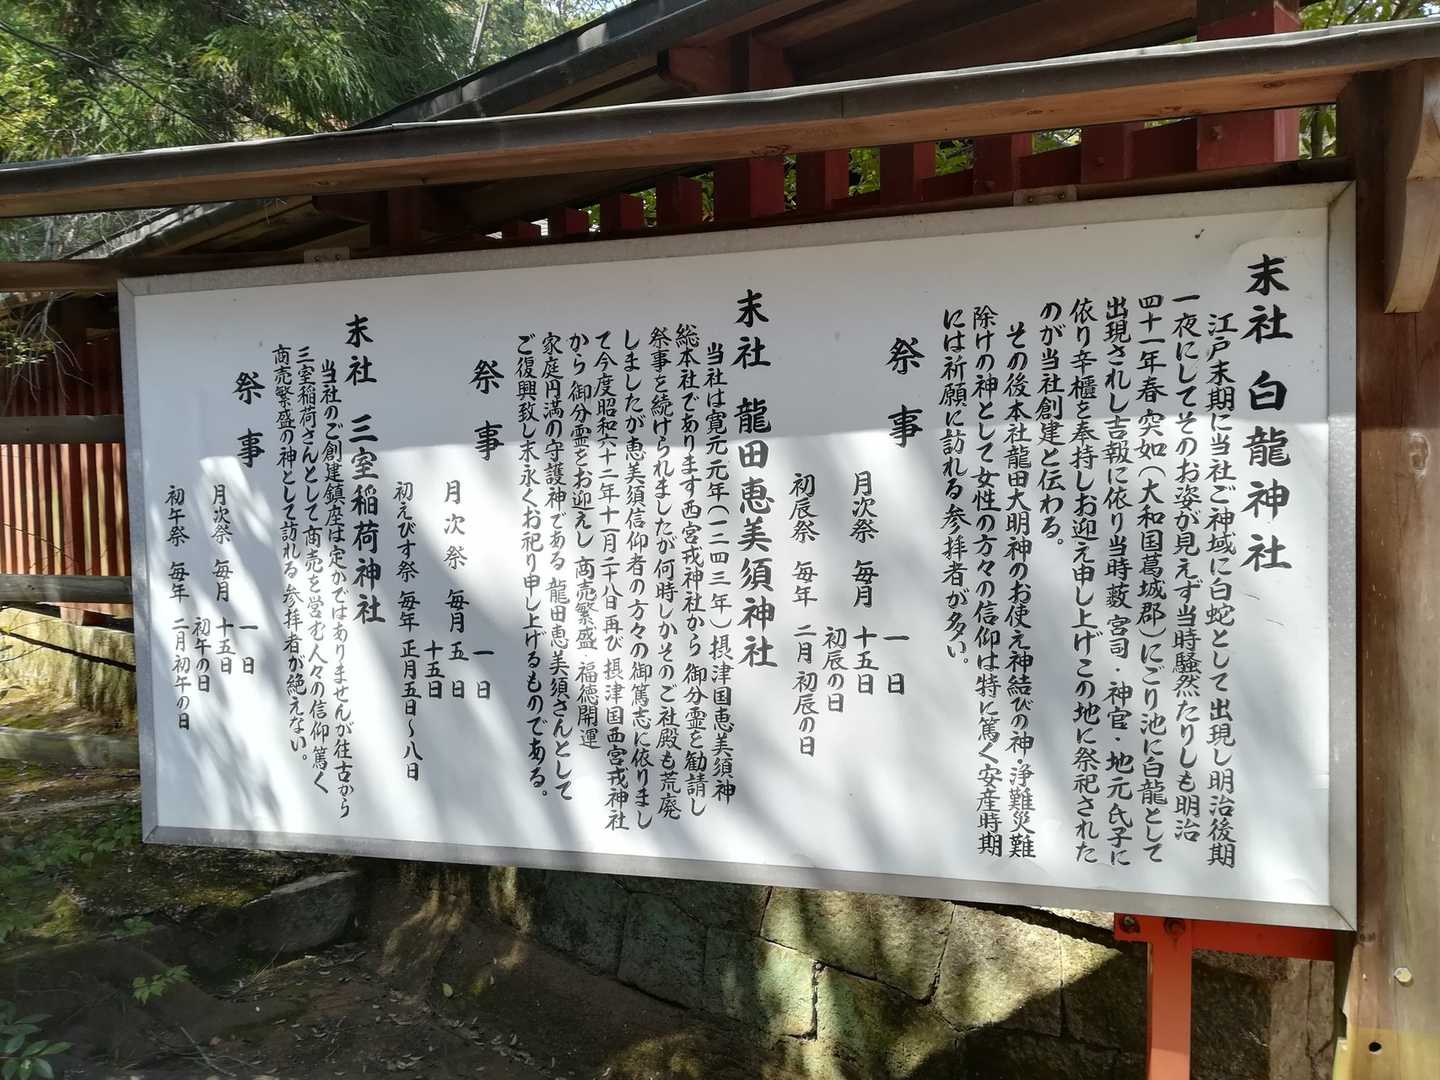 末社 白龍神社
江戸末期に当社ご神域に白蛇として出現し明治後期
一夜にしてそのお姿が見えず当時騒然たりしも明治
四十一年春 突如(大和国葛城郡)にごり池に白龍として
出現されし吉報に依り当時藪 宮司・神官・地元氏子に
依り辛櫃を奉持しお迎え申し上げこの地に祭祀された
のが当社創建と伝わる。
その後本社龍田大明神のお使え神結びの神・浄難災難
除けの神として女性の方々の信仰は特に篤く安産時期
には祈願に訪れる参拝者が多い。
祭事
月次祭 毎月 一日
十五日
初辰の日
初辰祭 毎年 二月 初辰の日
末社 龍田恵美須神社
当社は寛元元年(一二四三年)摂津国恵美須神
総本社であります西宮戎神社から 御分霊を勧請し
祭事を続けられましたが何時しかそのご社殿も荒廃
しましたが恵美須信仰者の方々の御篤志に依りまし
て今度昭和六十二年十一月二十八日再び 摂津国西宮戎神社
から 御分霊をお迎えし 商売繁盛 福徳開運
家庭円満の守護神である 龍田恵美須さんとして
ご復興致し末永くお祀り申し上げるものである。
祭事
月次祭 毎月 一日
五日
十五日
初えびす祭 毎年 正月五日〜八日
末社 三室稲荷神社
当社のご創建鎮座は定かではありませんが往古から
三室稲荷さんとして商売を営む人々の信仰 篤く
商売繁盛の神として訪れる 参拝者が絶えない。
祭事
月次祭 毎月 一日
十五日
初午の日
初午祭 毎年 二月初午の日